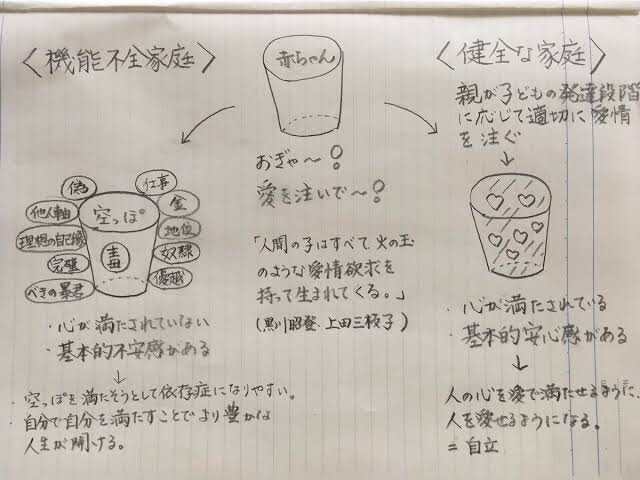 〈機能不全家庭〉
偽
仕事
他人軸
空っぽ
金
理想の自己像
地位
完璧
毒
奴隷
べきの暴君
優越
・心が満たされていない
・基本的不安感がある
↓
・空っぽを満たそうとして依存症になりやすい。
・自分で自分を満たすことでより豊かな
人生が開ける。
赤ちゃん
おぎゃ〜!
愛を注いで〜!
「人間の子はすべて、火の玉
のような愛情欲求を
持って生まれてくる。」
(黒川昭登、上田三枝子)
〈健全な家庭〉
親が子どもの発達段階
に応じて適切に愛情
を注ぐ
↓
・心が満たされている
・基本的安心感がある
↓
人の心を愛で満たせるように、
人を愛せるようになる。
=自立